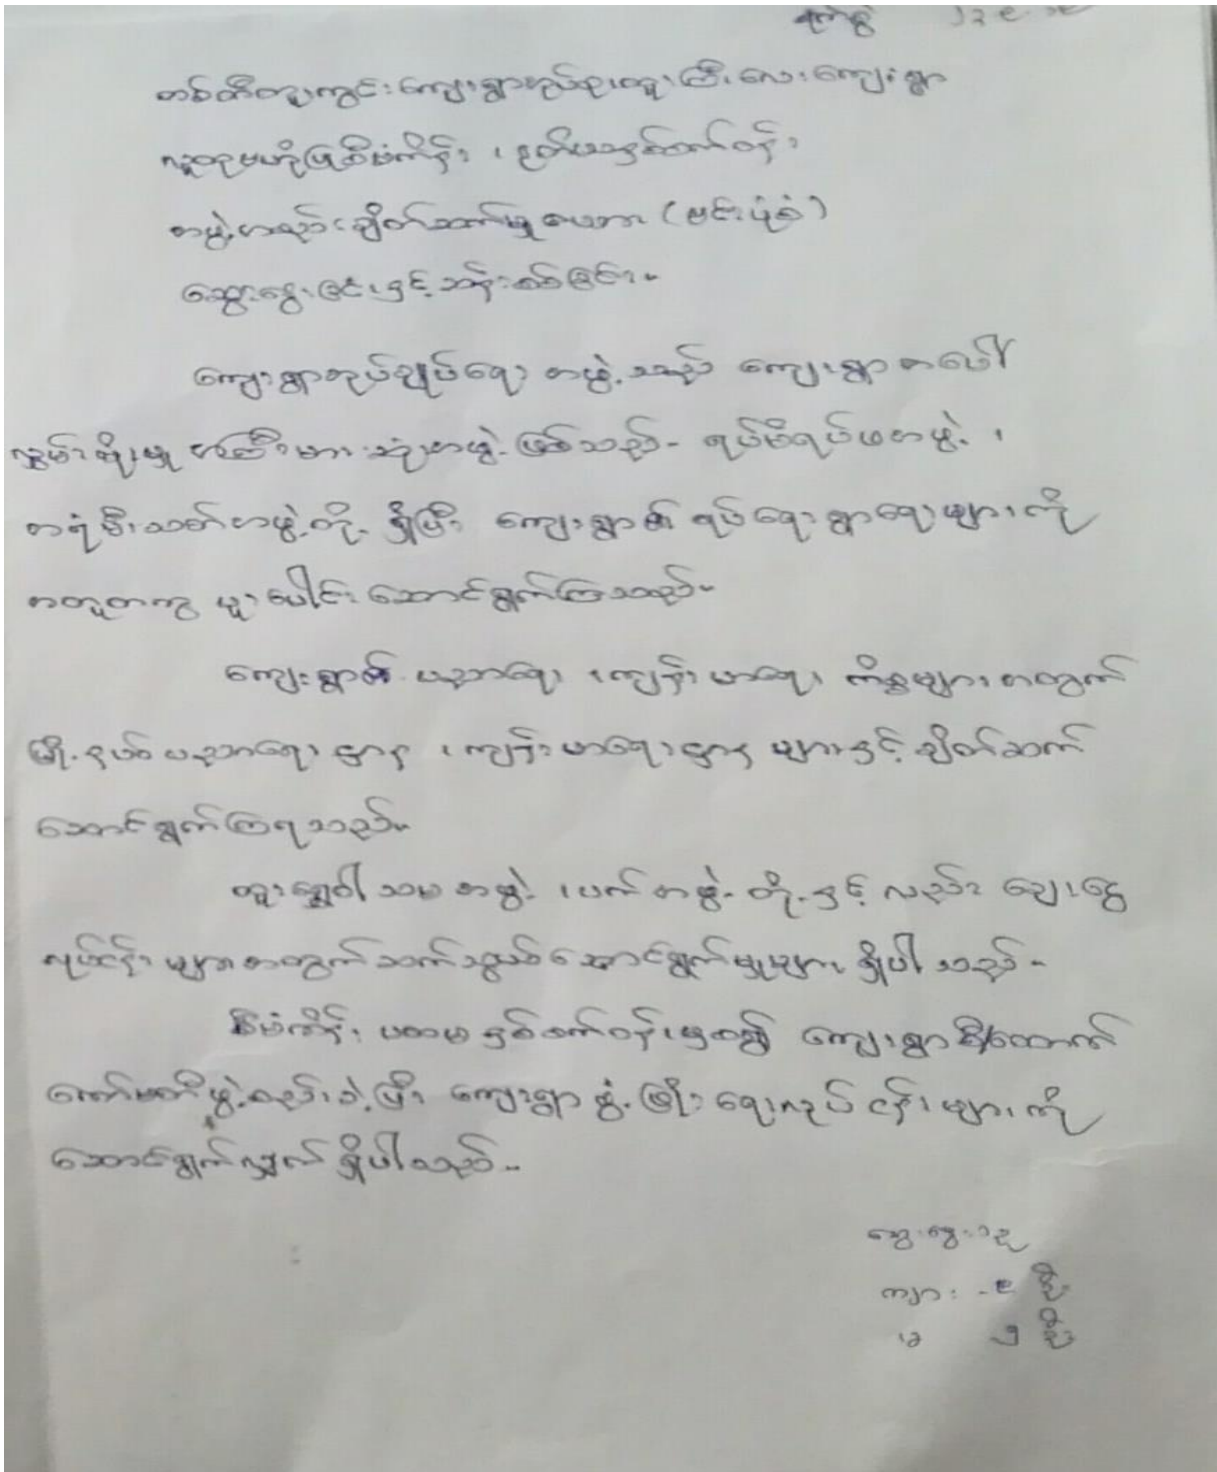 ရက်စွဲ
ကျေးရွာအုပ်စု၊ ထူးကြီးလေးကျေးရွာ
လူထုဗဟိုပြုစီမံကိန်း၊ ဒုတိယနှစ်စက်ဝန်း
အဖွဲ့အစည်းချိတ်ဆက်မှုဇယား (ဗင်းပုံစံ)
ဆွေးနွေးခြင်းနှင့်ဆန်းစစ်ခြင်း။
ကျေးရွာအုပ်ချုပ်ရေး အဖွဲ့သည် ကျေးရွာအပေါ်
လွှမ်းမိုးမှု အကြီးမားဆုံးအဖွဲ့ဖြစ်သည်။ ရပ်မိရပ်ဖအဖွဲ့၊
အရံမီးသတ်အဖွဲ့တို့ရှိပြီး ကျေးရွာ၏ ရပ်ရေးရွာရေးများကို
အတူတကွ ပူးပေါင်းဆောင်ရွက်ကြသည်။
ကျေးရွာ၏ ပညာရေး၊ ကျန်းမာရေး ကိစ္စများအတွက်
မြို့နယ်ပညာရေးဌာန၊ ကျန်းမာရေးဌာနများနှင့်ချိတ်ဆက်
ဆောင်ရွက်ကြရသည်။
ထူးရွှေဝါသမအဖွဲ့၊ ပက်အဖွဲ့တို့နှင့်လည်း ချေးငွေ
လုပ်ငန်းများအတွက်ဆက်သွယ်ဆောင်ရွက်မှုများရှိပါသည်။
စီမံကိန်း ပထမနှစ်စက်ဝန်းမှစ၍ ကျေးရွာစီ/ထောက်
ကော်မတီဖွဲ့စည်းခဲ့ပြီး ကျေးရွာဖွံ့ဖြိုးရေးလုပ်ငန်းများကို
ဆောင်ရွက်လျှက်ရှိပါသည်။
ဆွေးနွေးသူ
ကျား - ၉ ဦး
မ ၂ ဦး